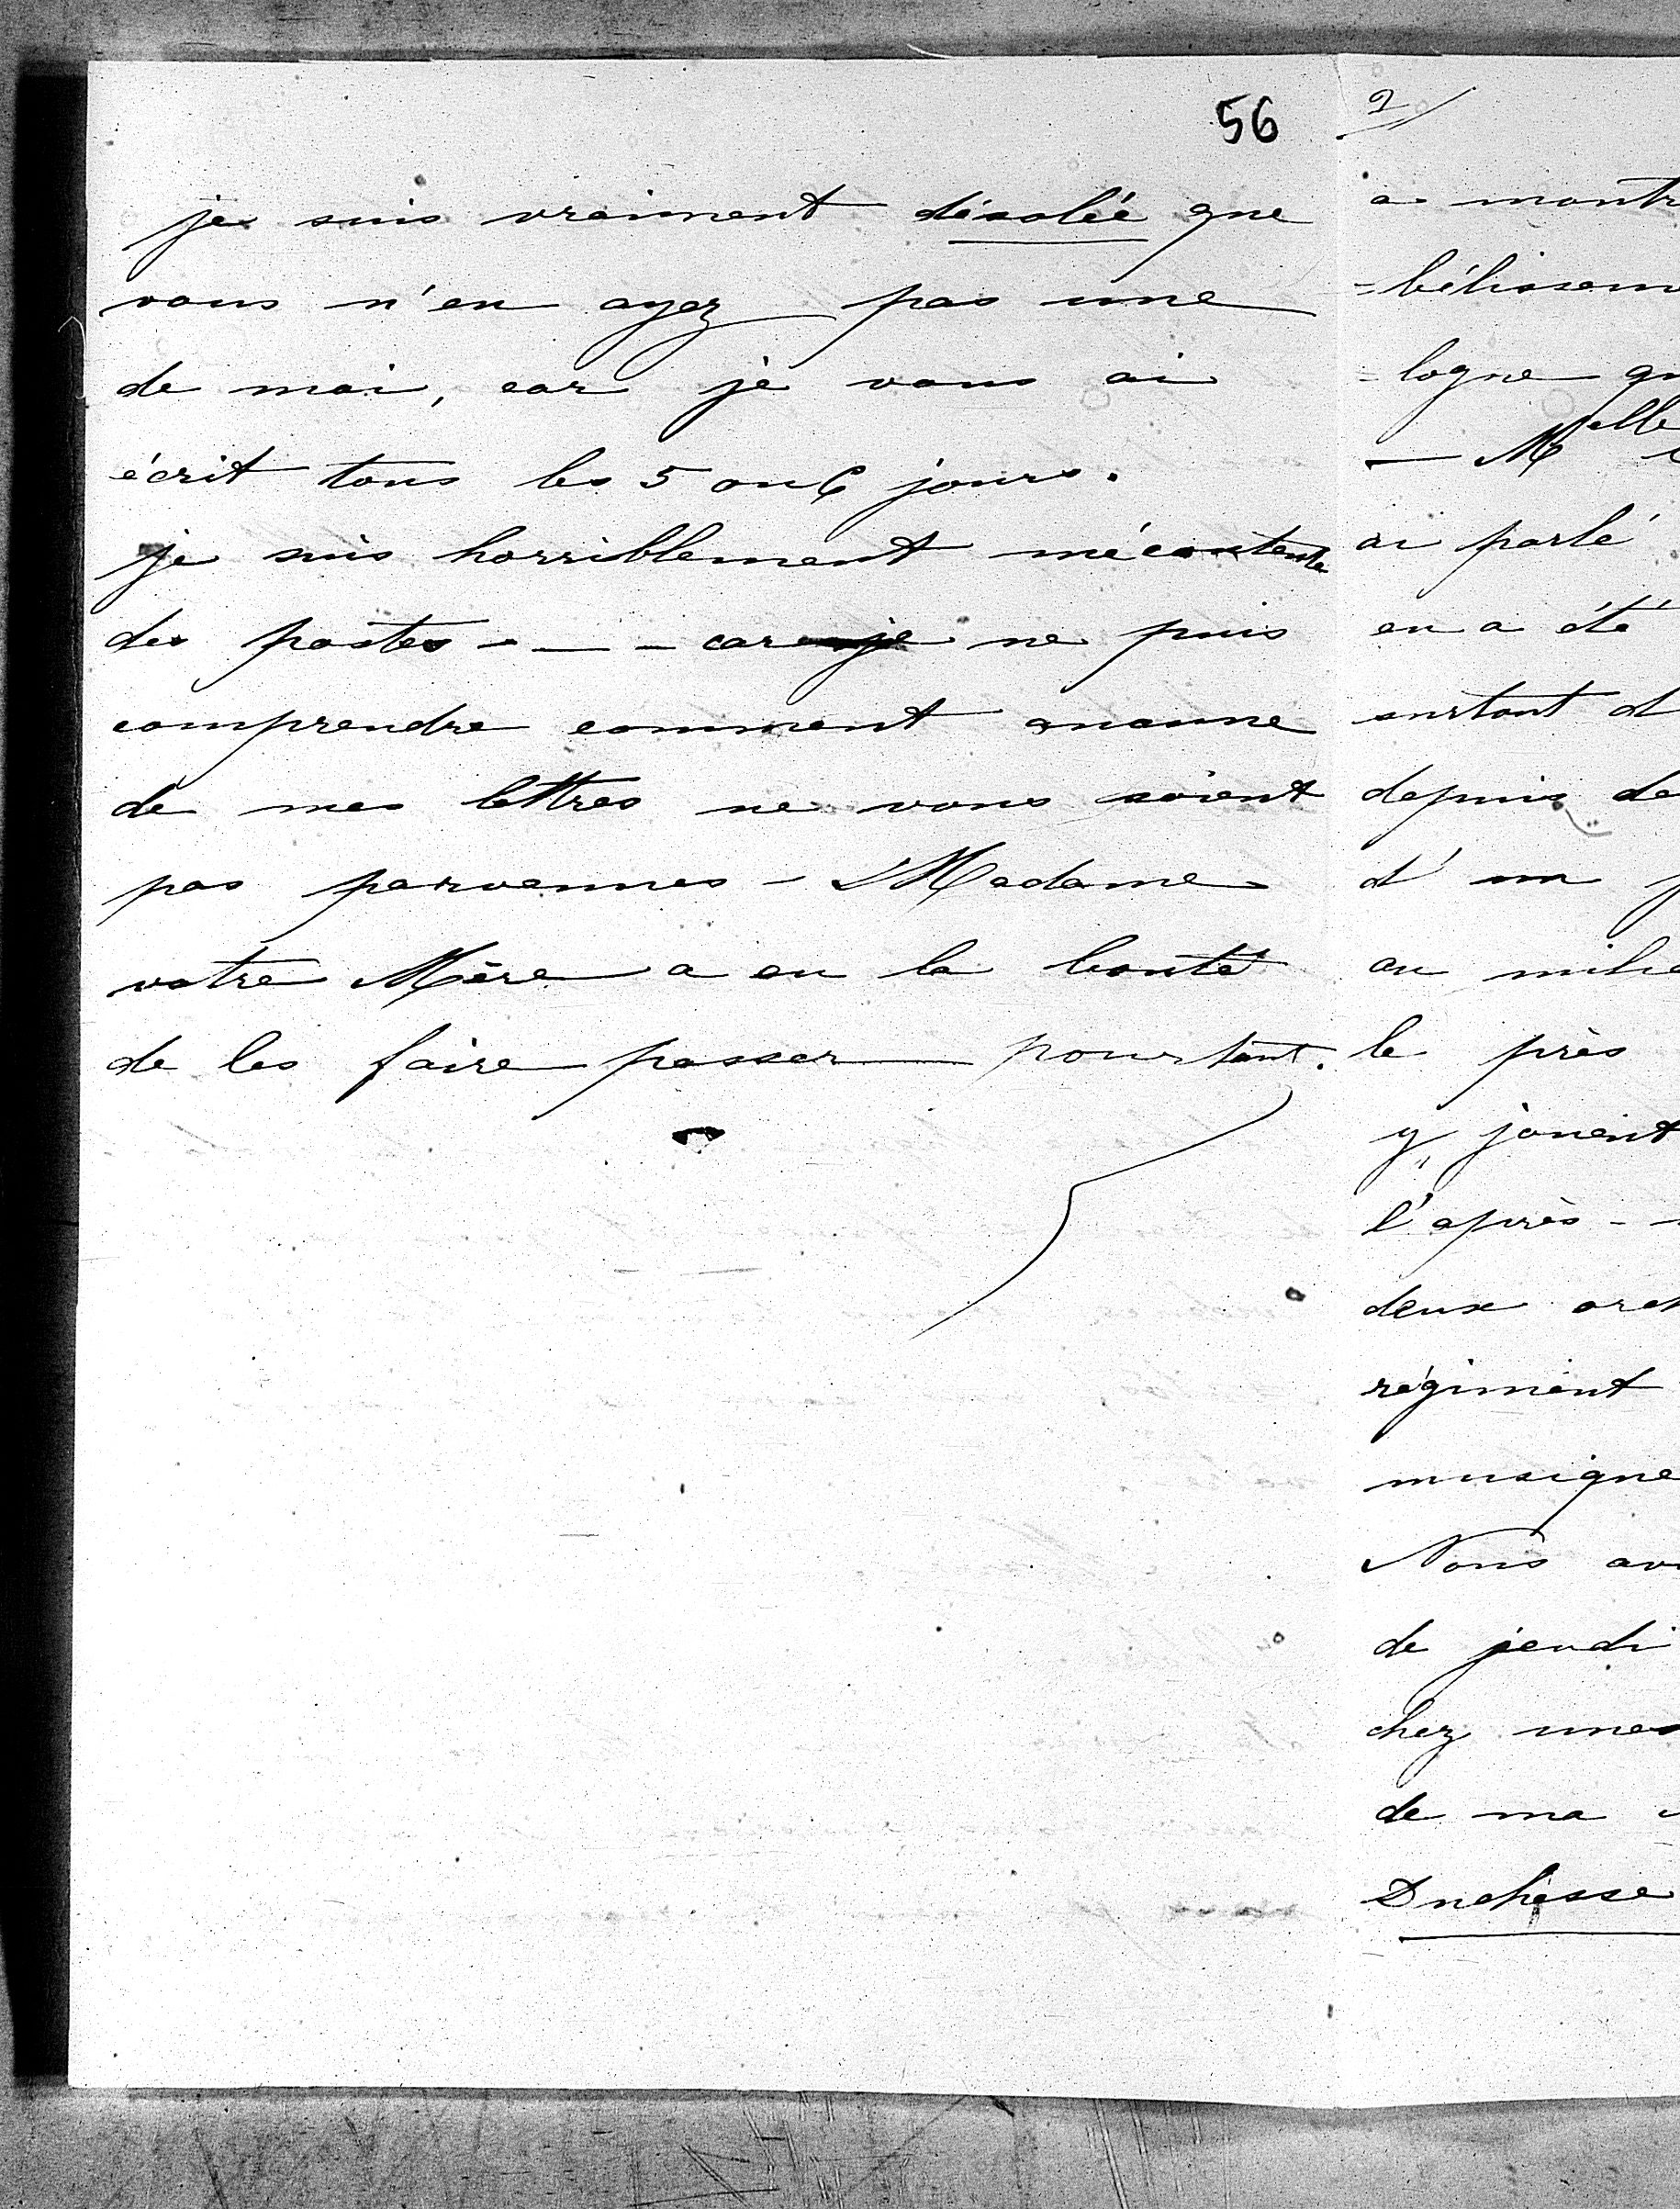 56
je suis vraiment désolée que
vous n'en ayez pas une
de moi, car je vous ai
écrit tous les 5 ou 6 jours.
je suis horriblement mécontente
des postes - — - car je ne puis
comprendre comment aucune
de mes lettres ne vous soient
pas parvenues - Madame
votre Mère a eu la bonté
de les faire passer pourtant.
2/
a montr
=bélissem
=logne qu
— Melle
ai parlé
en a été
surtout d
depuis de
d'un p
au milie
le près
y jouent
l'après -
deux orch
régiment
musique
Nous av
de jeudi
chez une
de ma
Duchesse